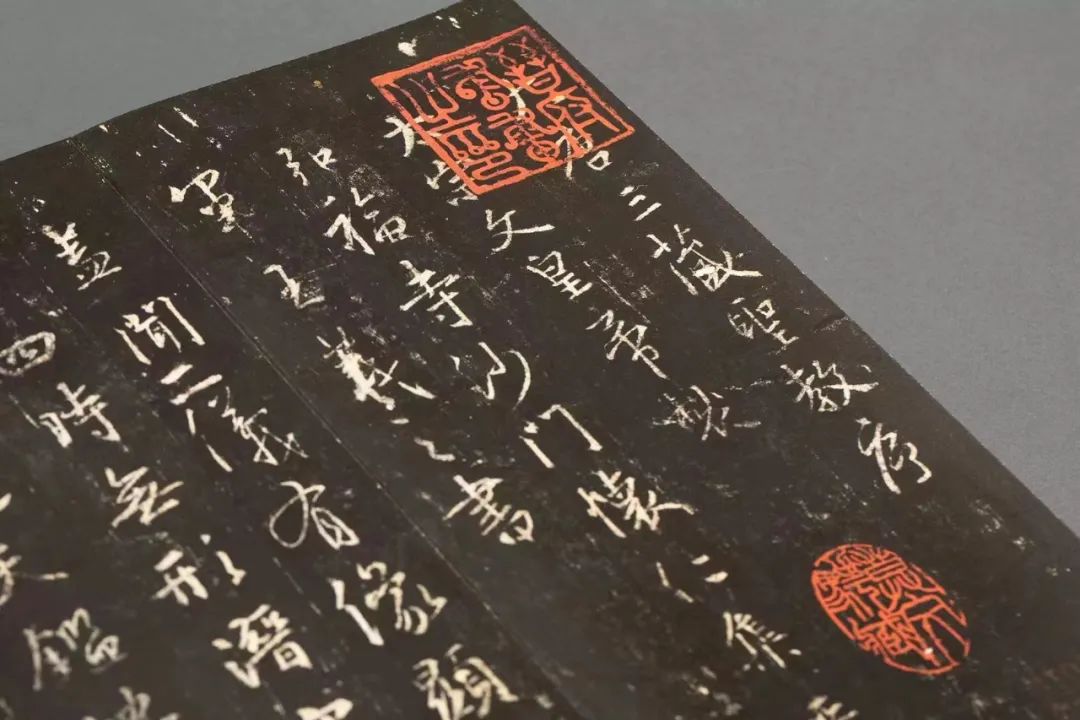 大唐三藏聖教序
太宗文皇帝製
弘福寺沙門懷仁集
軍王羲之書
蓋聞二儀有像顯
四時無形潛
天鑑